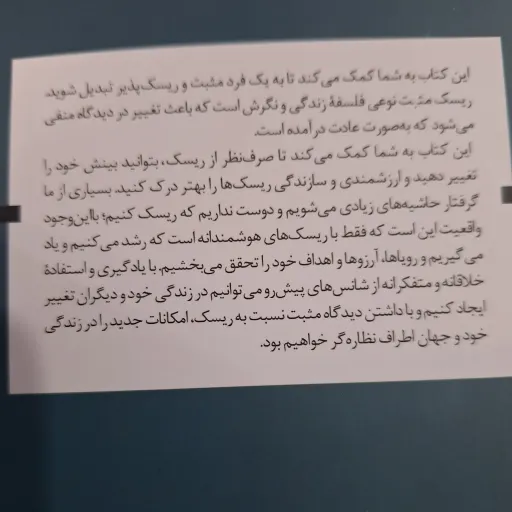 این کتاب به شما کمک می‌کند تا به یک فرد مثبت و ریسک‌پذیر تبدیل شوید.
ریسک مثبت نوعی فلسفهٔ زندگی و نگرش است که باعث تغییر در دیدگاه منفی
می‌شود که به‌صورت عادت درآمده است.
این کتاب به شما کمک می‌کند تا صرف‌نظر از ریسک، بتوانید بینش خود را
تغییر دهید و ارزشمندی و سازندگی ریسک‌ها را بهتر درک کنید. بسیاری از ما
گرفتار حاشیه‌های زیادی می‌شویم و دوست نداریم که ریسک کنیم؛ بااین‌وجود
واقعیت این است که فقط با ریسک‌های هوشمندانه است که رشد می‌کنیم و یاد
می‌گیریم و رویاها، آرزوها و اهداف خود را تحقق می‌بخشیم. با یادگیری و استفادهٔ
خلاقانه و متفکرانه از شانس‌های پیش‌رو می‌توانیم در زندگی خود و دیگران تغییر
ایجاد کنیم و با داشتن دیدگاه مثبت نسبت به ریسک، امکانات جدید را در زندگی
خود و جهان اطراف نظاره‌گر خواهیم بود.